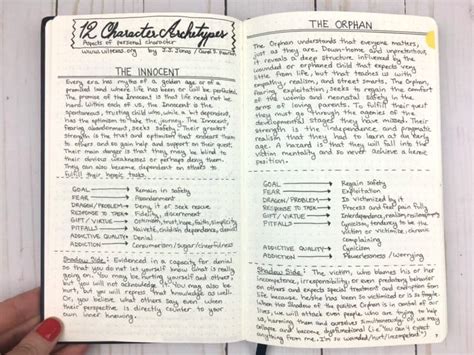 12 Character Archetypes
Aspects of personal character
www.uiltexas.org by J.J. Jonas / Carol S. Pearson
THE INNOCENT
Every era has myths of a golden age or of a
promised land where life has been or will be perfect.
The promise of the Innocent is that life need not be
hard. Within each of us, the Innocent is the
spontaneous, trusting child who, while a bit dependent,
has the optimism to take the journey. The Innocent,
fearing abandonment, seeks safety. Their greatest
strength is the trust and optimism that endears them
to others and so gain help and support on their quest.
Their main danger is that they may be blind to
their obvious weaknesses or perhaps deny them.
They can also become dependent on others to
fulfill their heroic tasks.
GOAL → Remain in safety
FEAR → Abandonment
DRAGON/PROBLEM → Deny it or seek rescue
RESPONSE TO TASK → Fidelity, discernment
GIFT / VIRTUE → Optimism, trust, hope, faith, simplicity
PITFALLS → Naiveté, childish dependence, denial
ADDICTIVE QUALITY → Denial
ADDICTION → Consumerism/sugar/cheerfulness
Shadow Side: Evidenced in a capacity for denial
so that you do not let yourself know what is really
going on. You may be hurting yourself and others,
but you will not acknowledge it. You may also be
hurt, but you will repress that knowledge as well.
Or, you believe what others say even when
their perspective is directly counter to your
own inner knowing.
THE ORPHAN
The Orphan understands that everyone matters,
just as they are. Down-home and unpretentious,
it reveals a deep structure influenced by the
wounded or orphaned child that expects very
little from life, but that teaches us with
empathy, realism, and street smarts. The Orphan,
fearing exploitation, seeks to regain the comfort
of the womb and neonatal safety in the
arms of loving parents. To fulfill their quest
they must go through the agonies of the
developmental stages they have missed. Their
strength is the independence and pragmatic
realism that they had to learn at an early
age. A hazard is that they will fall into the
victim mentality and so never achieve a heroic
position.
GOAL → Regain safety
FEAR → Exploitation
DRAGON/PROBLEM → Is victimized by it
RESPONSE TO TASK → Process and feel pain fully
GIFT / VIRTUE → Interdependence, realism,
PITFALLS → Cynicism, tendency to be the
victim or victimize, chronic
complaining
ADDICTIVE QUALITY → Cynicism
ADDICTION → Powerlessness / worrying
Shadow Side: The victim, who blames his or her
incompetence, irresponsibility, or even predatory behavior
on others and expects special treatment and exemption from
life because he/she has been so victimized or is so fragile.
When this Shadow of the positive Orphan is in control of our
lives, we will attack even people who are trying to help
us, harming them and ourselves simultaneously. Or, we may
collapse and become dysfunctional (i.e. "You can't expect
anything from me. I'm so wounded/hurt/incompetent")